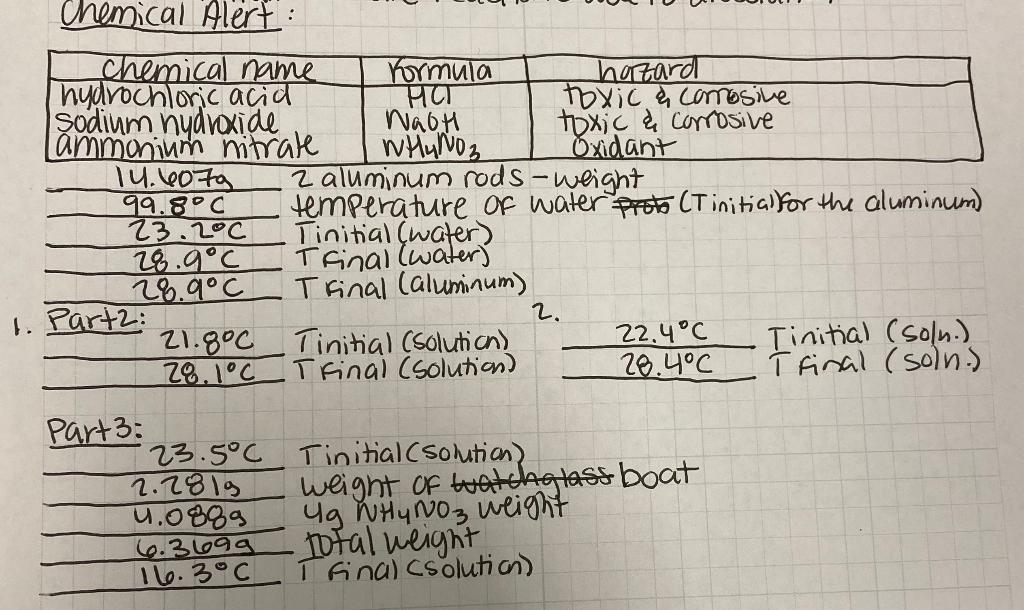 Chemical Alert:
Chemical name Formula hazard
hydrochloric acid HCl toxic & corrosive
sodium hydroxide NaOH toxic & corrosive
ammonium nitrate NH4NO3 Oxidant
14.607g 2 aluminum rods - weight
99.8°C temperature of water (Tinitial for the aluminum)
23.2°C Tinitial (water)
28.9°C T Final (water)
28.9°C T Final (aluminum)
1. Part 2: 2.
21.8°C Tinitial (solution) 22.4°C Tinitial (soln.)
28.1°C T Final (solution) 28.4°C T Final (soln.)
Part 3:
23.5°C Tinitial (solution)
2.281g weight of watchglass boat
4.088g 4g NH4NO3 weight
6.369g total weight
16.3°C T Final (solution)